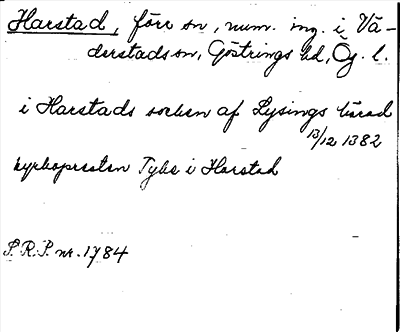 Harstad, förr sn, num. ing. i Vä-
derstads sn, Göstrings hd, Ög. l.
i Harstads sorken af Lysings härad
13/12 1382
kyrkopresten Tyke i Harstad
S.R.P. nr. 1784